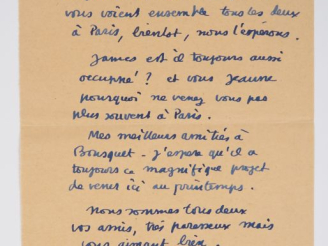 vous voient ensemble tous les deux
à Paris, bientot, nous l'esperons.
James est il toujours aussi
occupné ? et vous jeanne
pourquoi ne venez vous pas
plus souvent à Paris.
Mes meilleurs amitiés à
Bousquet - j'espere qu'il a
toujours ce magnifique projet
de venir ici au printemps.
Nous sommes tous deux
vos amis, très paresseux mais
vous aimant bien.